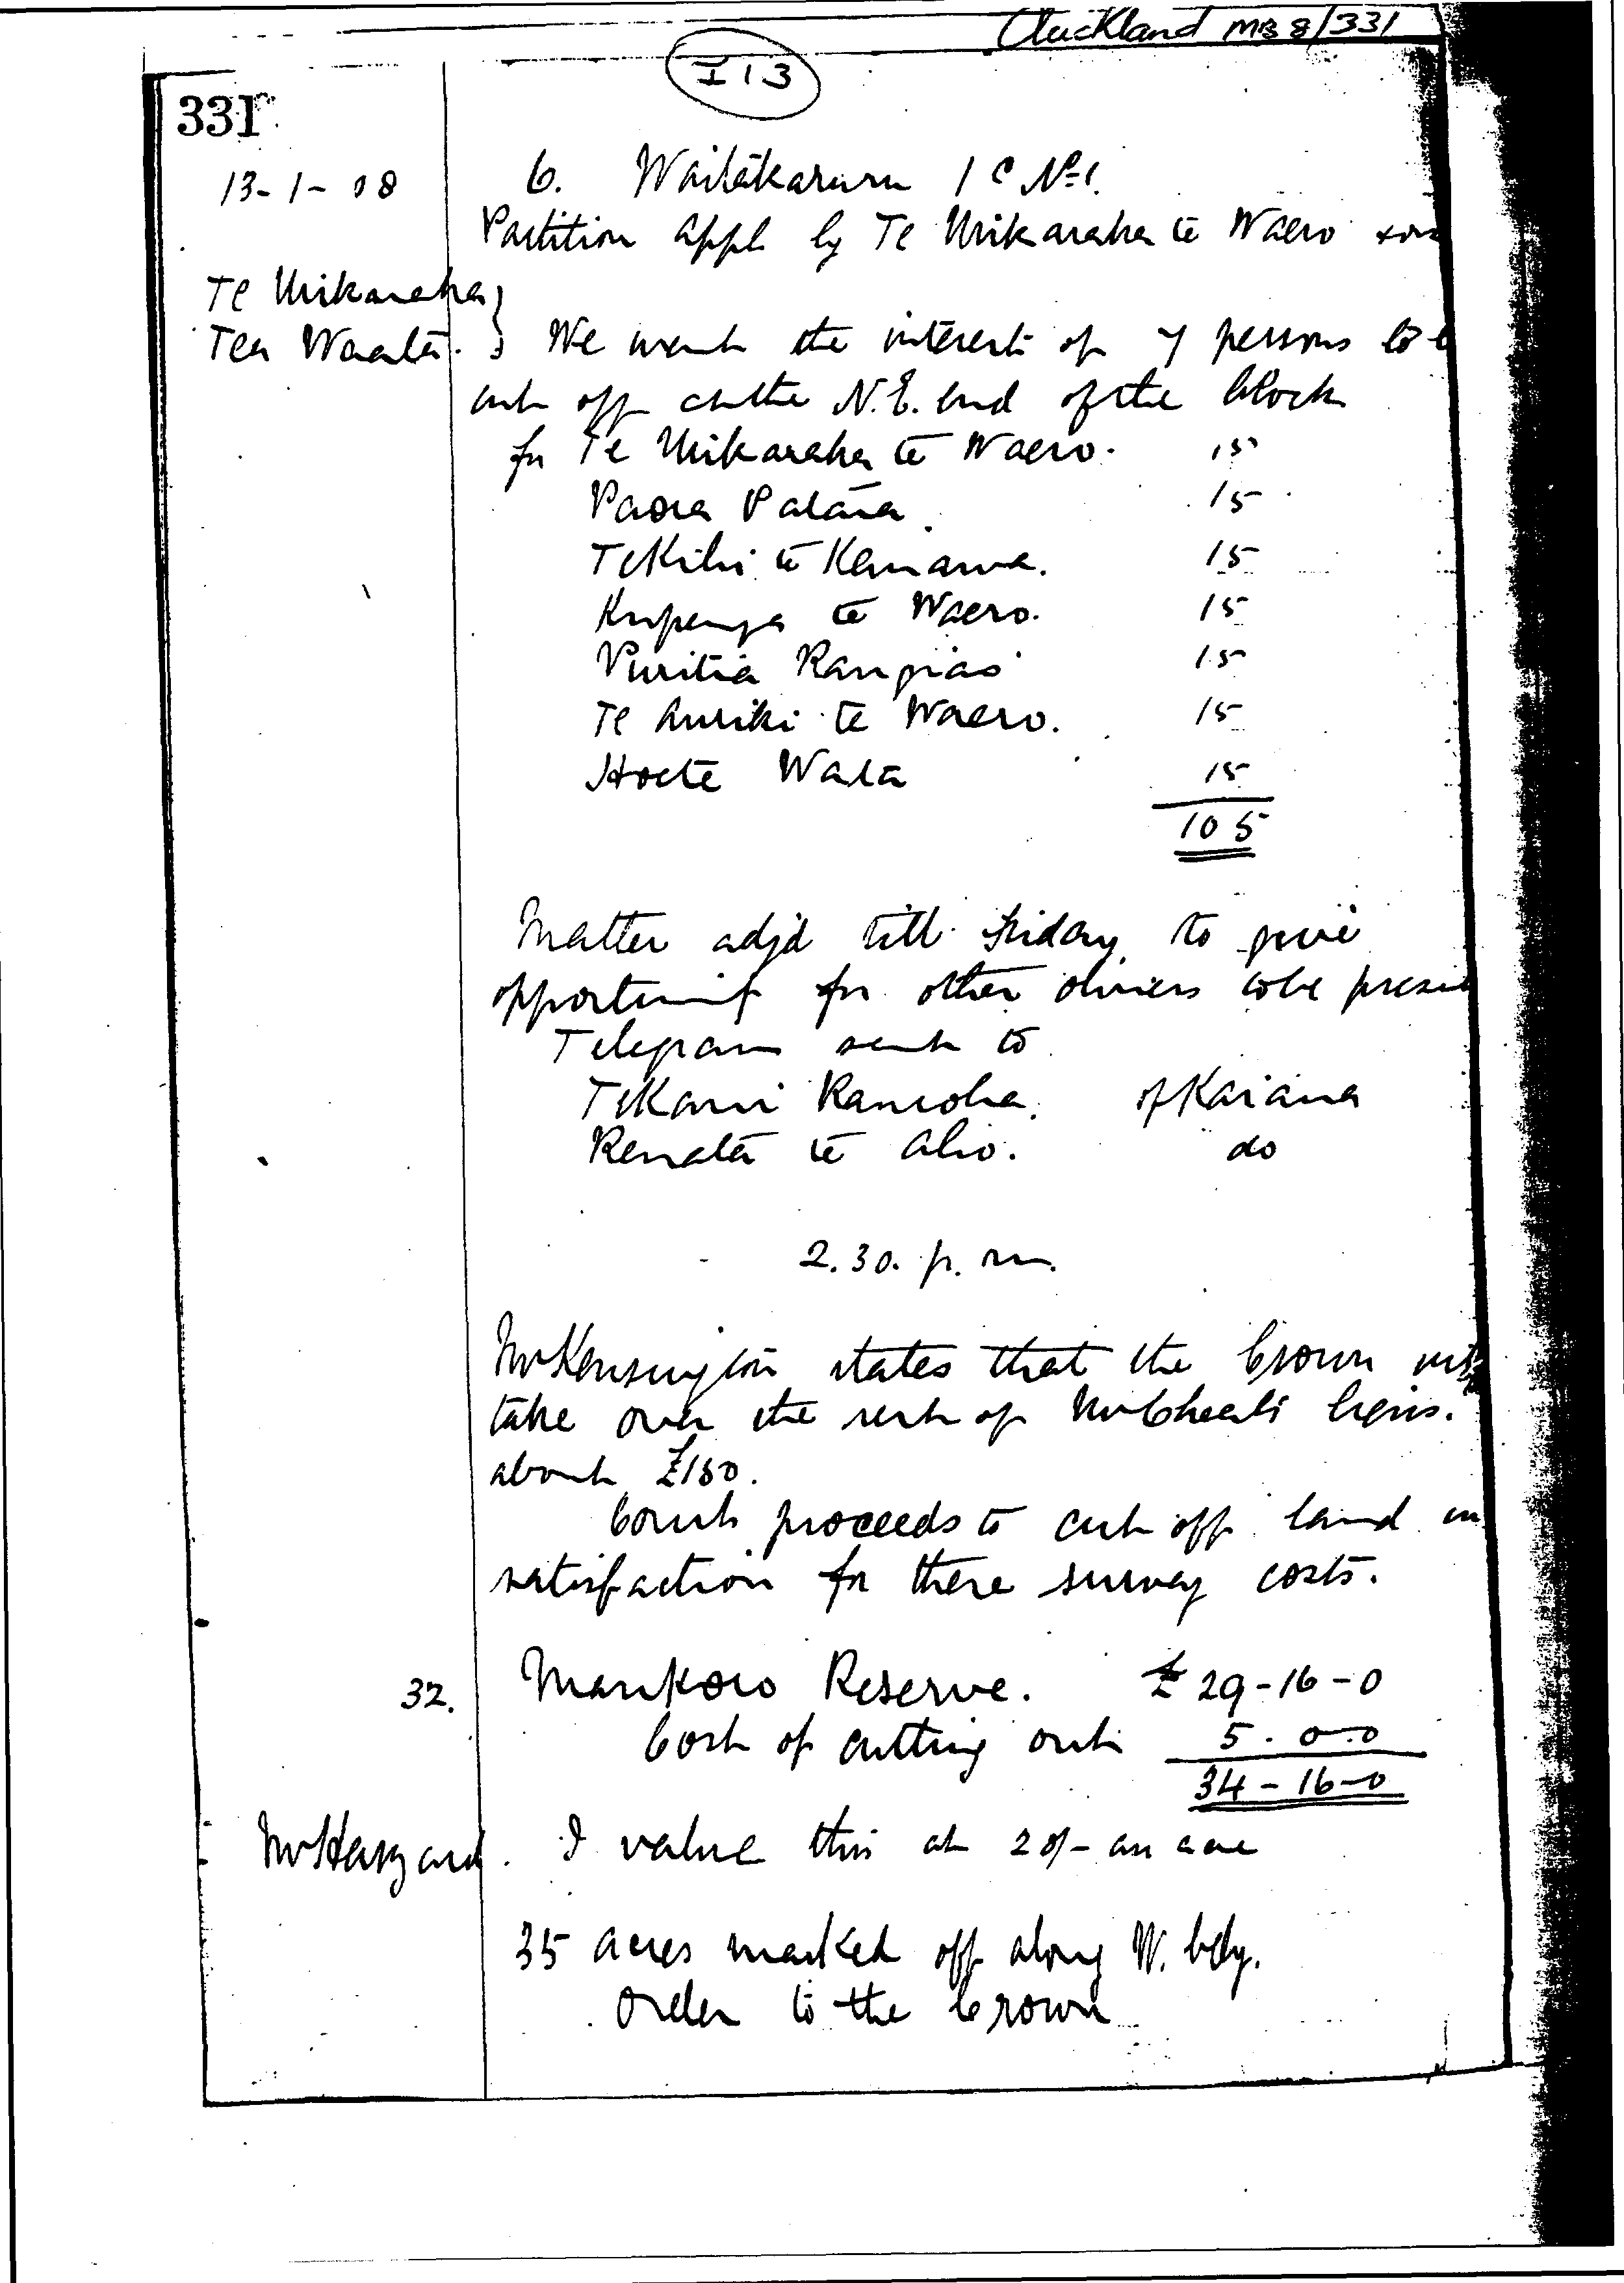 Auckland MB 8/331
I 13
331
13-1-08
6. Waitakaruru 1 C No 1.
Partition appln by Te Urikaraka te Waero
Te Urikaraka
Tea Waata. } We want the interests of 7 persons to
cut off on the N.E. end of the block
for Te Urikaraka te Waero. 15
Paora Patara. 15
Te Kihi te Kamawa. 15
Kupenga te Waero. 15
Puritia Rangiao 15
Te Auriki te Waero. 15
Hoete Wata 15
105
Matter adjd till Friday to give
opportunity for other owners to be present
Telegram sent to
of Kaiaua
Renata te Aho. do
2.30. p.m.
Mr Kensington states that the Crown will
take over the rest of Mr Cheal's liens.
about £150.
Court proceeds to cut off land in
satisfaction for these survey costs.
32. Maukoro Reserve. £ 29-16-0
Cost of cutting out 5.0.0
34-16-0
I value this at 20/- an acre
35 acres marked off along W. bdy.
Order to the Crown